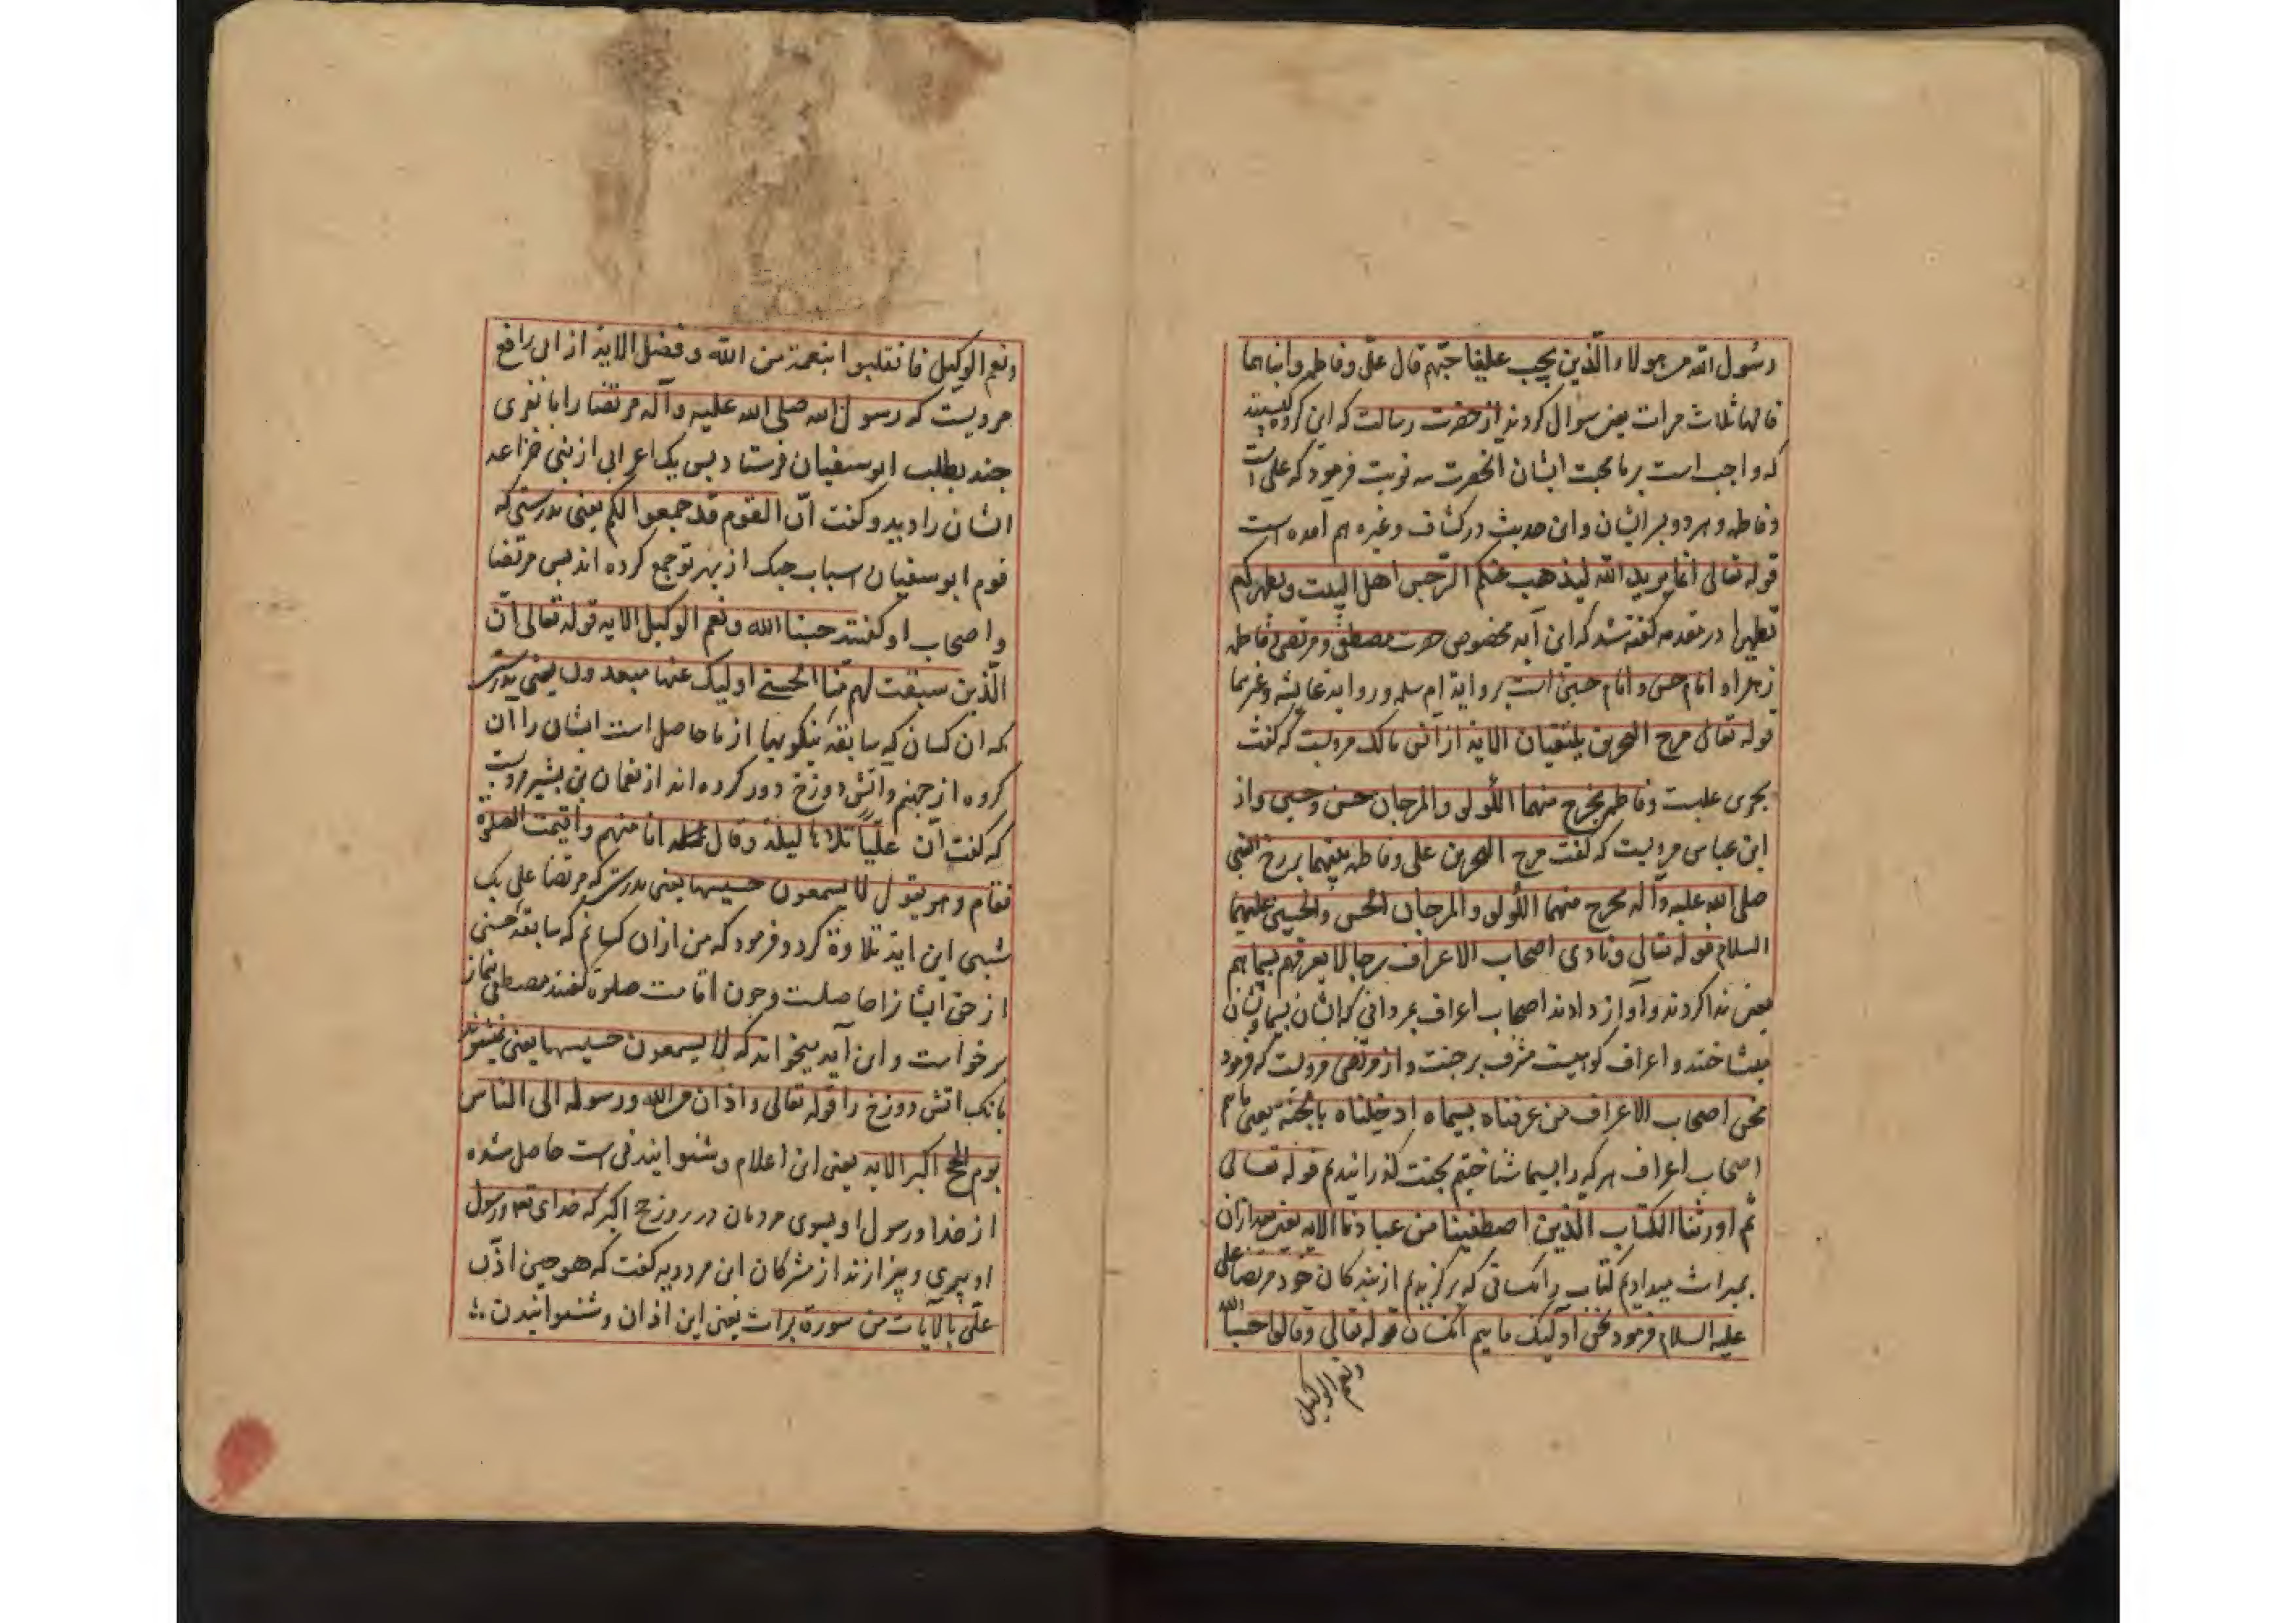 رسول الله من هولاء الذین یجب علینا حبهم قال علی و فاطمه و ابناهما
قالها ثلاث مرات یعنی سؤال کردند از حضرت رسالت که این کروه کیستند
که واجب است بر ما محبت ایشان انحضرت سه نوبت فرمود که علی است
و فاطمه و هر دو پسر ایشان و این حدیث در کشاف و غیره هم آمده است
قوله تعالی انما یرید الله لیذهب عنکم الرجس اهل البیت و یطهرکم
تطهیرا در مقدمه کفته شد که این آیه مخصوص حضرت مصطفی و مرتضی و فاطمه
زهرا و امام حسن و امام حسین است بروایة ام سلمه و روایة عایشه و غیرهما
قوله تعالی مرج البحرین یلتقیان الایة از انس مالک مرویست که کفت
بحری علیست و فاطمه یخرج منهما اللؤلؤ و المرجان حسن و حسین و از
ابن عباس مرویست که کفت مرج البحرین علی و فاطمه بینهما برزخ النبی
صلی الله علیه و آله یخرج منهما اللؤلؤ و المرجان الحسن و الحسین علیهما
السلام قوله تعالی و نادی اصحاب الاعراف رجالا یعرفهم بسیماهم
یعنی ندا کردند و آواز دادند اصحاب اعراف بمردانی که ایشان بسیما و نشان
میشناختند و اعراف کوهیست مشرف بر جنت و از مرتضی مرویست که فرمود
نحن اصحاب الاعراف من عرفناه بسیماه ادخلناه بالجنة یعنی مائیم
اصحاب اعراف هر که را بسیما شناختیم بجنت کذرانیدیم قوله تعالی
ثم اورثنا الکتاب الذین اصطفینا من عبادنا الایه یعنی بعد ازان
بمیراث میدادیم کتاب را انکسانی که برکزیدیم از بندکان خود مرتضا علی
علیه السلام فرمود نحن اولیک ماییم انکسان قوله تعالی و قالوا حسبنا الله
ونعم الوکیل
ونعم الوکیل فانقلبوا بنعمة من الله و فضل الایة از ابی رافع
مرویست که رسول الله صلی الله علیه و آله مرتضا را با نفری
چند بطلب ابو سفیان فرستاد پس یک اعرابی از بنی خزاعه
ایشان را دید و کفت ان القوم قد جمعوا لکم یعنی بدرستی که
قوم ابو سفیان اسباب جنک از بهر تو جمع کرده اند پس مرتضا
و اصحاب او کفتند حسبنا الله و نعم الوکیل الایه قوله تعالی ان
الذین سبقت لهم منا الحسنی اولیک عنها مبعدون یعنی بدرستی
که ان کسان که سابقه نیکویها از ما حاصل است ایشان را ان
کروه از جهنم و اتش دوزخ دور کرده اند از نعمان بن بشیر مرویست
که کفت ان علیا تلاها لیلة و قال انا منهم و اقیمت الصلوة
فقام و هو یقول لا یسمعون حسیسها یعنی بدرستی که مرتضا علی یک
شبی این ایة تلاوة کرد و فرمود که من ازان کسانم که سابقه حسنی
از حق ایشانرا حاصلست و چون اقامت صلوة کفتند مصطفی بنماز
برخواست و این آیه میخواند که لا یسمعون حسیسها یعنی نمیشنوند
بانک اتش دوزخ را قوله تعالی و اذان من الله و رسوله الی الناس
یوم الحج اکبر الایه یعنی این اعلام و شنوانیدنی است حاصل شده
از خدا و رسول او بسوی مردمان در روز حج اکبر که خدای تعا و رسول
او بری و بیزارند از مشرکان ابن مردویه کفت که هو حین اذن
علی بالآیات من سورة برات یعنی این اذان و شنوانیدن